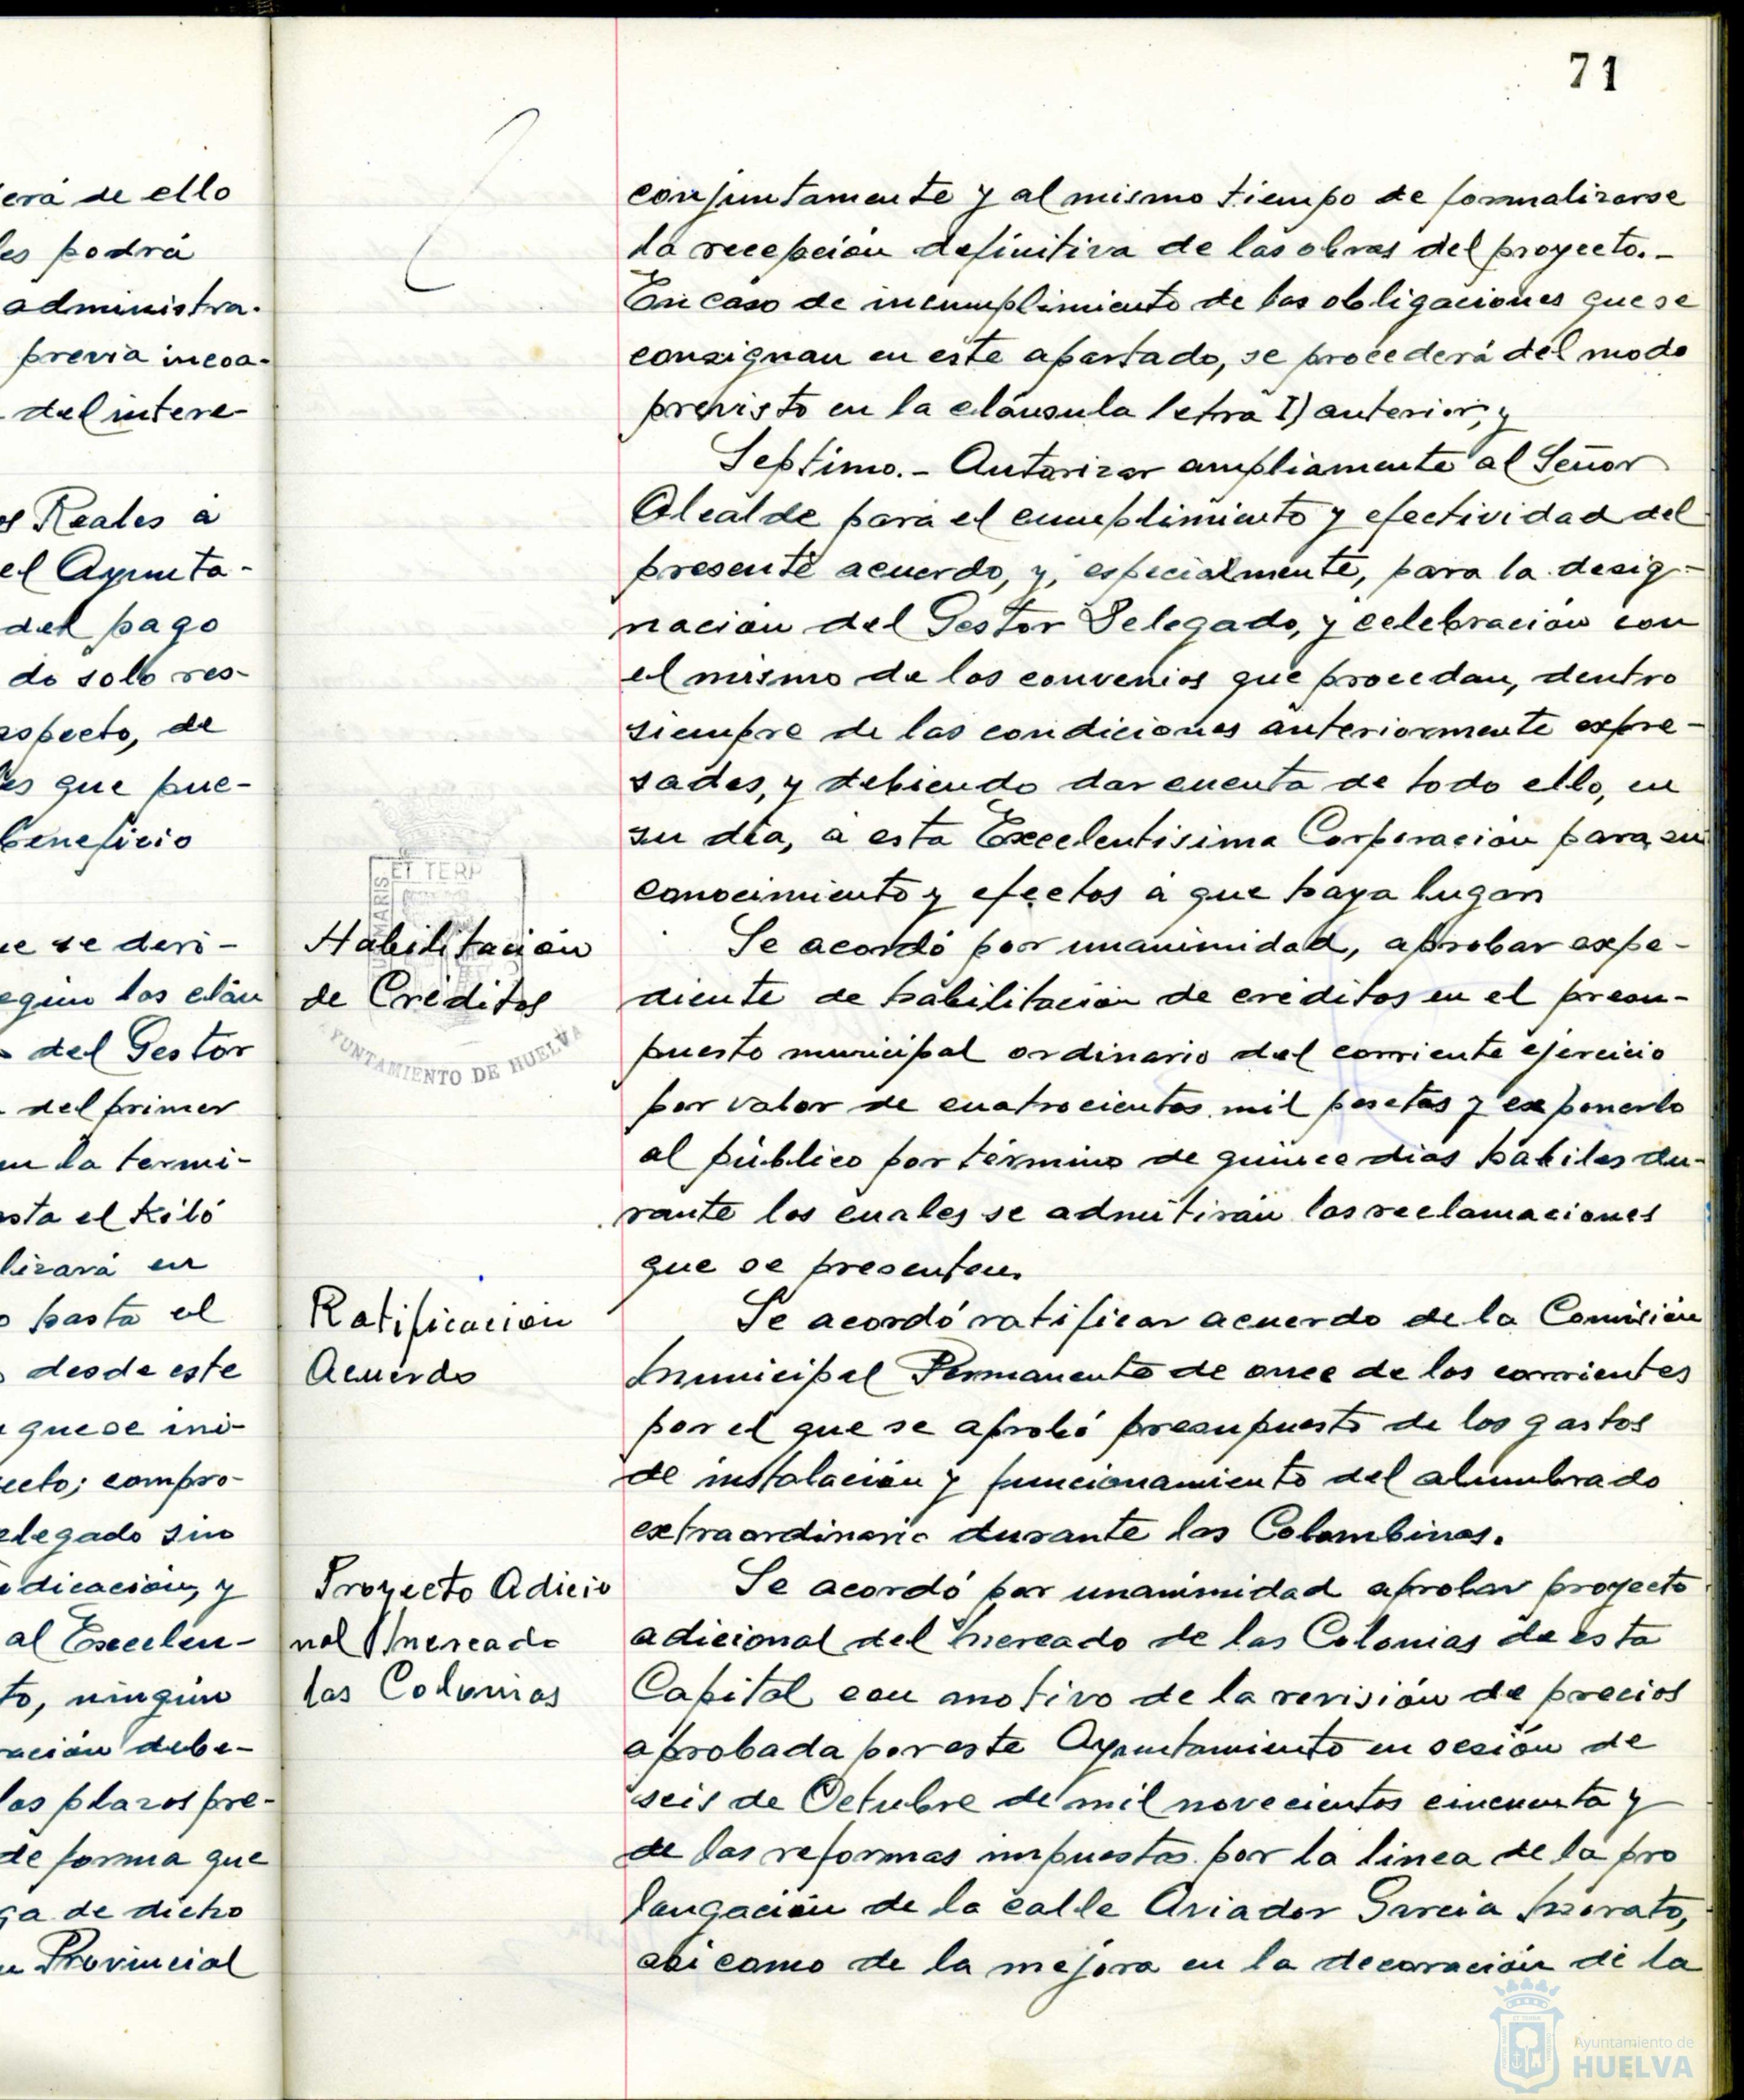 71
erá de ello
les podrá
administra-
previa incoa-
del intere-
os Reales a
el Ayunta-
del pago
do solo res-
aspecto, de
les que pue-
beneficio
ue se deri-
egún las cláu
del Gestor
del primer
en la termi-
asta el kiló
lizará en
o hasta el
desde este
que se ini-
ecto; compro-
elegado sin
dicación, y
al Excelen-
to, ningún
ración debe-
los plazos pre-
de forma que
ga de dicho
Provincial
conjuntamente y al mismo tiempo de formalizarse
la recepción definitiva de las obras del proyecto.-
En caso de incumplimiento de las obligaciones que se
consignan en este apartado, se procederá del modo
previsto en la cláusula letra I) anterior; y
Septimo.- Autorizar ampliamente al Señor
Alcalde para el cumplimiento y efectividad del
presente acuerdo, y, especialmente, para la desig-
nación del Gestor Delegado, y celebración con
el mismo de los convenios que procedan, dentro
siempre de las condiciones anteriormente expre-
sadas, y debiendo dar cuenta de todo ello, en
su día, a esta Excelentisima Corporación para su
conocimiento y efectos a que haya lugar.
Habilitación
de Créditos
ET TERR
MARIS
AYUNTAMIENTO DE HUELVA
Se acordó por unanimidad, aprobar expe-
diente de habilitación de créditos en el presu-
puesto municipal ordinario del corriente ejercicio
por valor de cuatrocientas mil pesetas y exponerlo
al público por término de quince dias habiles du-
rante los cuales se admitirán las reclamaciones
que se presenten.
Ratificación
Acuerdo
Se acordó ratificar acuerdo de la Comisión
Municipal Permanente de once de los corrientes
por el que se aprobó presupuesto de los gastos
de instalación y funcionamiento del alumbrado
extraordinario durante las Colombinas.
Proyecto Adicio
nal Mercado
las Colonias
Se acordó por unanimidad aprobar proyecto
adicional del Mercado de las Colonias de esta
Capital con motivo de la revisión de precios
aprobada por este Ayuntamiento en sesión de
seis de Octubre de mil novecientos cincuenta y
de las reformas impuestas por la linea de la pro
longación de la calle Aviador Garcia Morato,
asi como de la mejora en la decoración de la
Ayuntamiento de
HUELVA